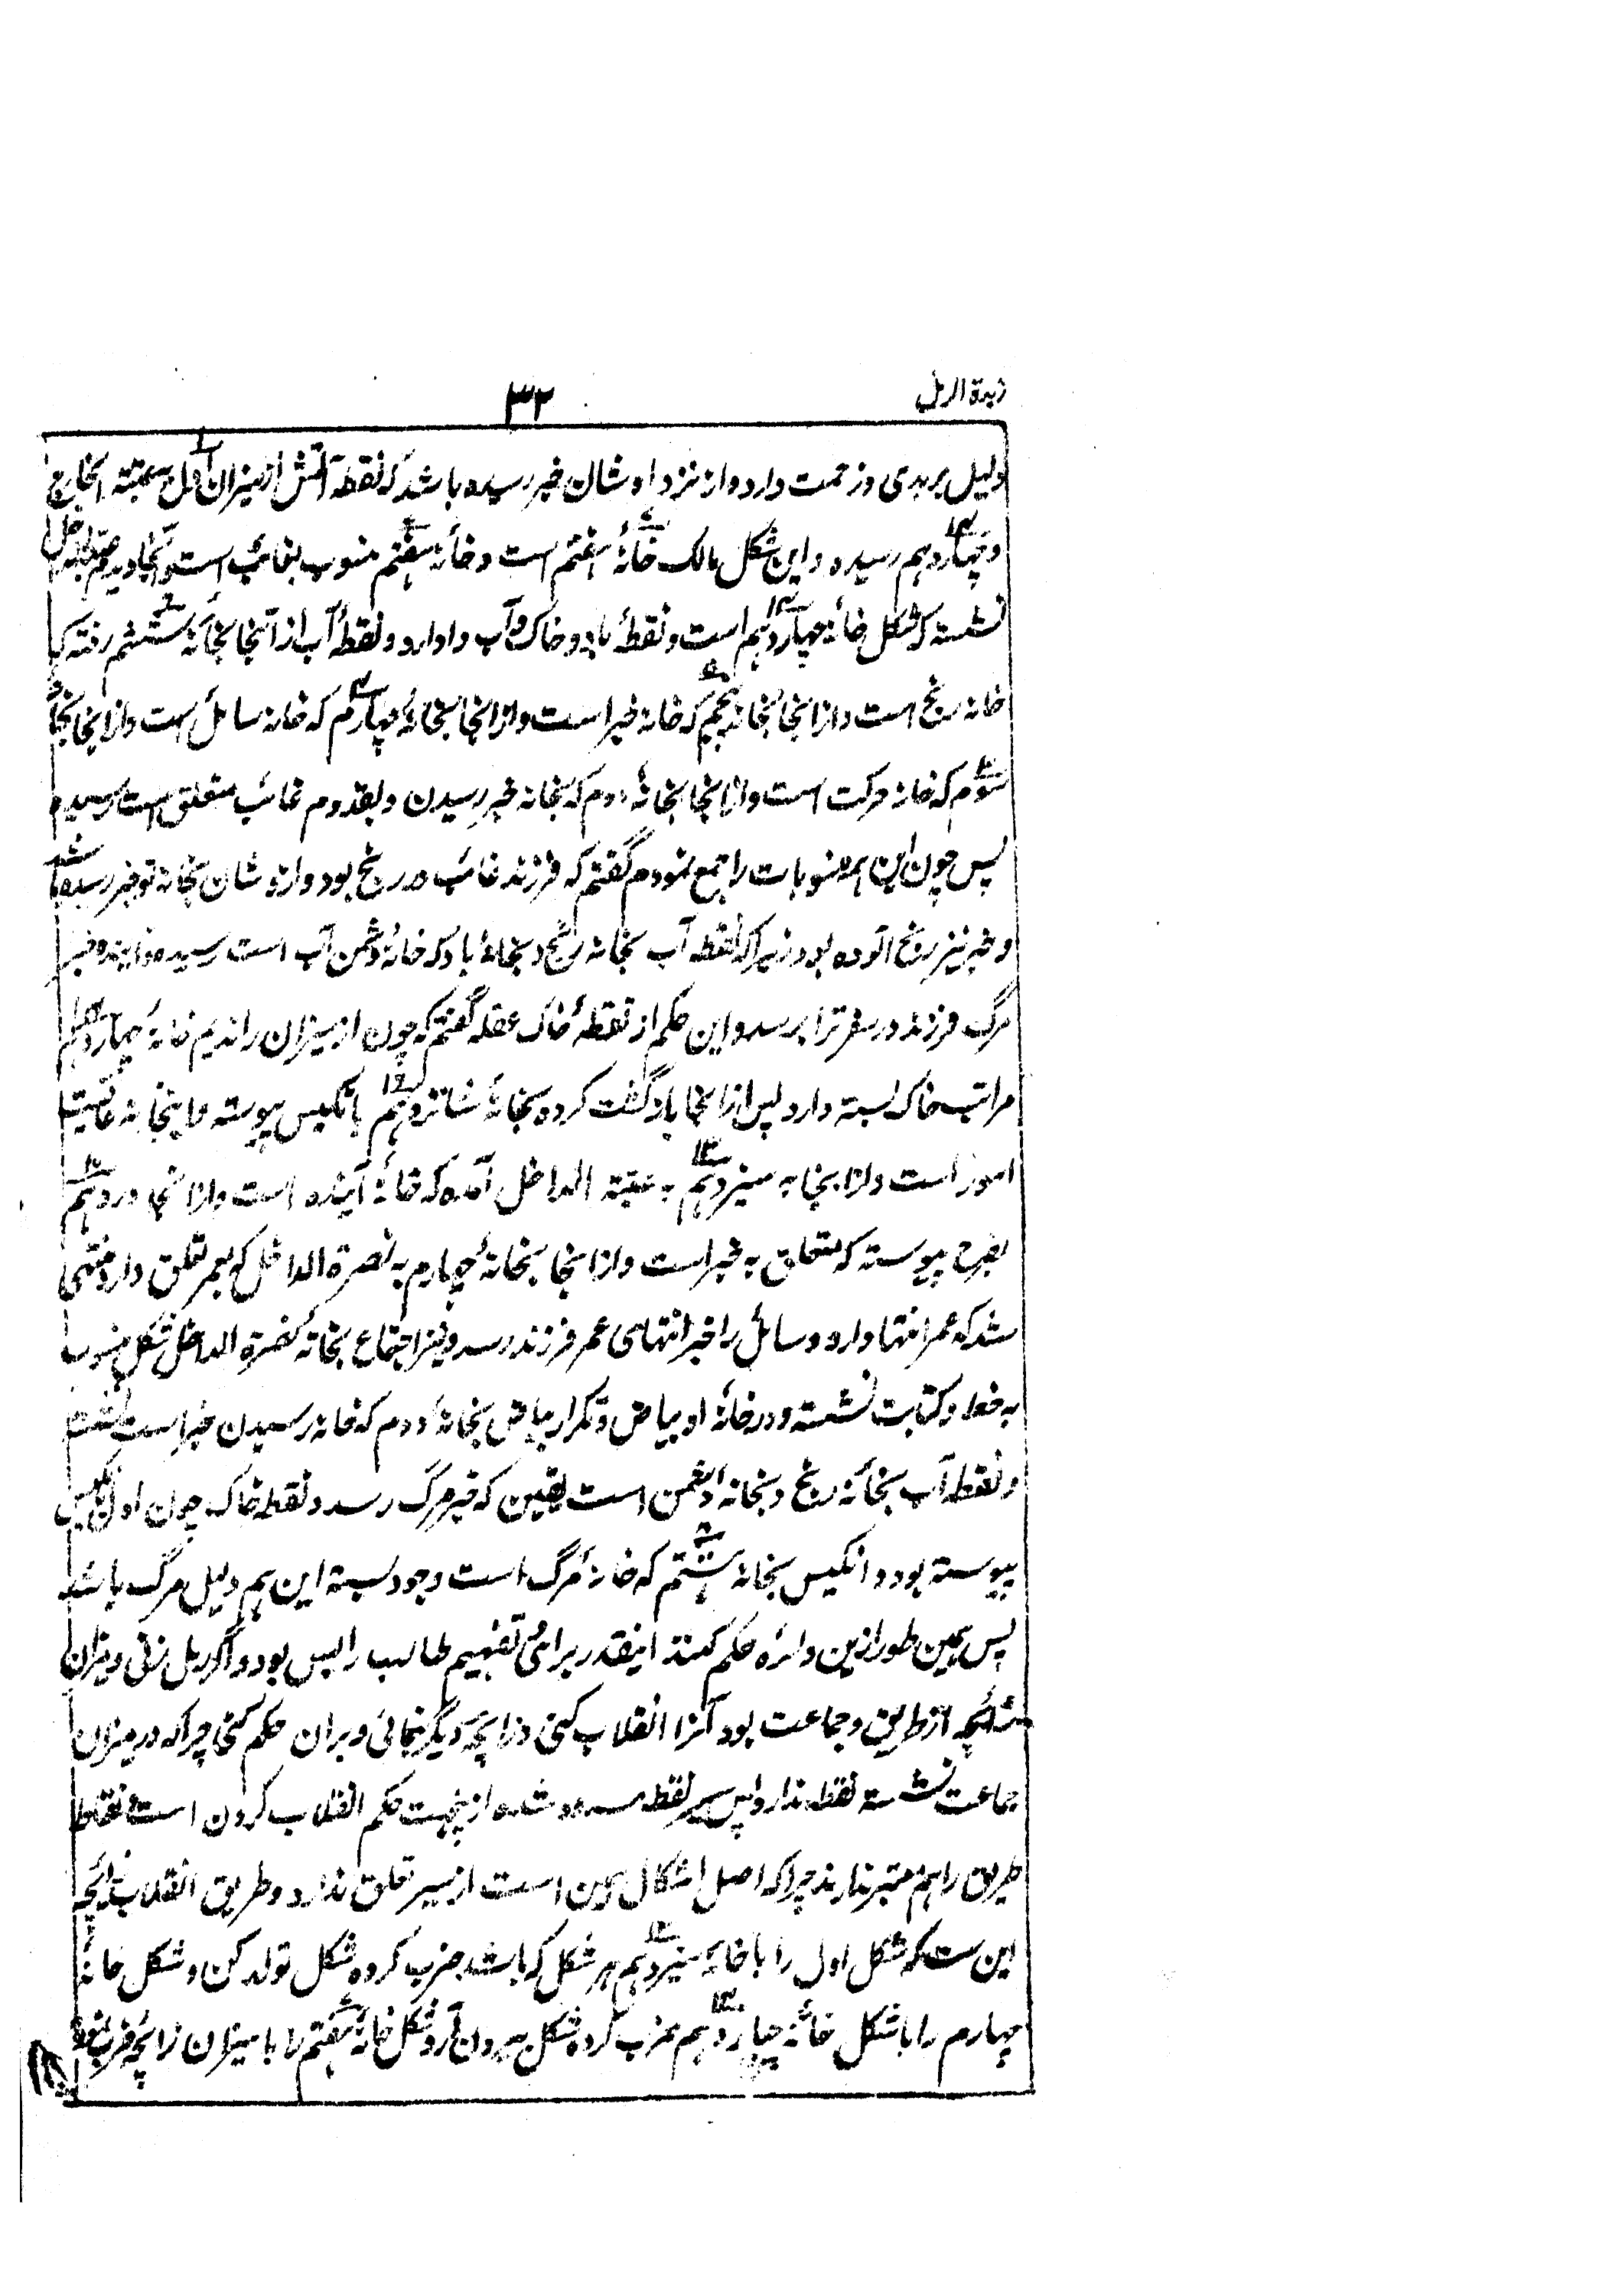 زبدة الرمل
۳۲
دلیل بر بدی و زحمت دارد و از نزد اوشان خبر رسیده باشد که نقطه آتش از میزان اول بعتبة الخارج
و چهاردهم رسیده و این شکل مالک خانهٔ هفتم است و خانهٔ هفتم منسوب بغائب است و آنجا دیدیم
نشسته که شکل خانهٔ چهاردهم است و نقطهٔ باد و خاک و آب دارد و نقطهٔ آب از آنجا بخانهٔ ششم رفته که
خانه رنج است و از انجا بخانهٔ پنجم که خانه خبر است و از انجا بخانهٔ چهارم که خانه سائل است و از انجا بخانهٔ
سوم که خانه حرکت است و از انجا بخانهٔ دوم که بخانه خبر رسیدن و بقدوم غائب متعلق است رسیده
پس چون این همه منسوبات را جمع نمودم گفتم که فرزند غائب در رنج بود و از وشان بخانه تو خبر رسیده باشد
و خبر نیز رنج آلوده بود زیرا که نقطه آب بخانه رنج و بخانهٔ باد که خانهٔ دشمن آب است رسیده و اینده خبر
مرگ فرزند در سفر ترا برسد و این حکم از نقطهٔ خاک عقله گفتم که چون از میزان راندیم خانهٔ چهاردهم
مراتب خاک بسته دارد پس از انجا بازگشت کرده بخانهٔ شانزدهم بانکیس پیوسته و اینخانه عاقبت
امور است و از انجا به سیزدهم به عتبة الداخل آمده که خانهٔ آینده است و از انجا دوازدهم
بفرح پیوسته که متعلق به خبر است و از انجا بخانهٔ چهارم به نصرة الداخل که بعمر تعلق دارد منتهی
شد که عمر انتها دارد و سائل را خبر انتهای عمر فرزند رسد و نیز اجتماع بخانه نصرة الداخل شکل منسوب
به خط و کتابت نشسته و در خانهٔ او بیاض و تکرار بیاض بخانهٔ دوم که خانه رسیدن خبر است نشسته
و نقطه آب بخانهٔ رنج و بخانه دشمن است یقین که خبر مرگ رسد و نقطه خاک چون اول بانکیس
پیوسته بود و انکیس بخانهٔ هشتم که خانهٔ مرگ است وجود بسته این هم دلیل مرگ باشد
پس بهمین طور ازین دائره حکم کنند اینقدر برای تفهیم طالب را بس بود و اگر رمل زنی و میزان
زائچه از طریق و جماعت بود آنرا انقلاب کنی و زائچهٔ دیگر نمائی و بران حکم کنی چرا که در میزان
جماعت نشسته نقطه ندارد پس سیر نقطه مسدود شده ازینجهت حکم انقلاب کردن است و نقاط
طریق را هم معتبر ندارند چرا که اصل اشکال همین است از سیر تعلق ندارد و طریق انقلاب زائچه
این ست که شکل اول را با خانهٔ سیزدهم هر شکل که باشد ضرب کرده شکل تولد کن و شکل خانهٔ
چهارم را با شکل خانهٔ چهاردهم ضرب کرده شکل بیرون آر و شکل خانهٔ هفتم را با میزان زائچه ضرب نموده